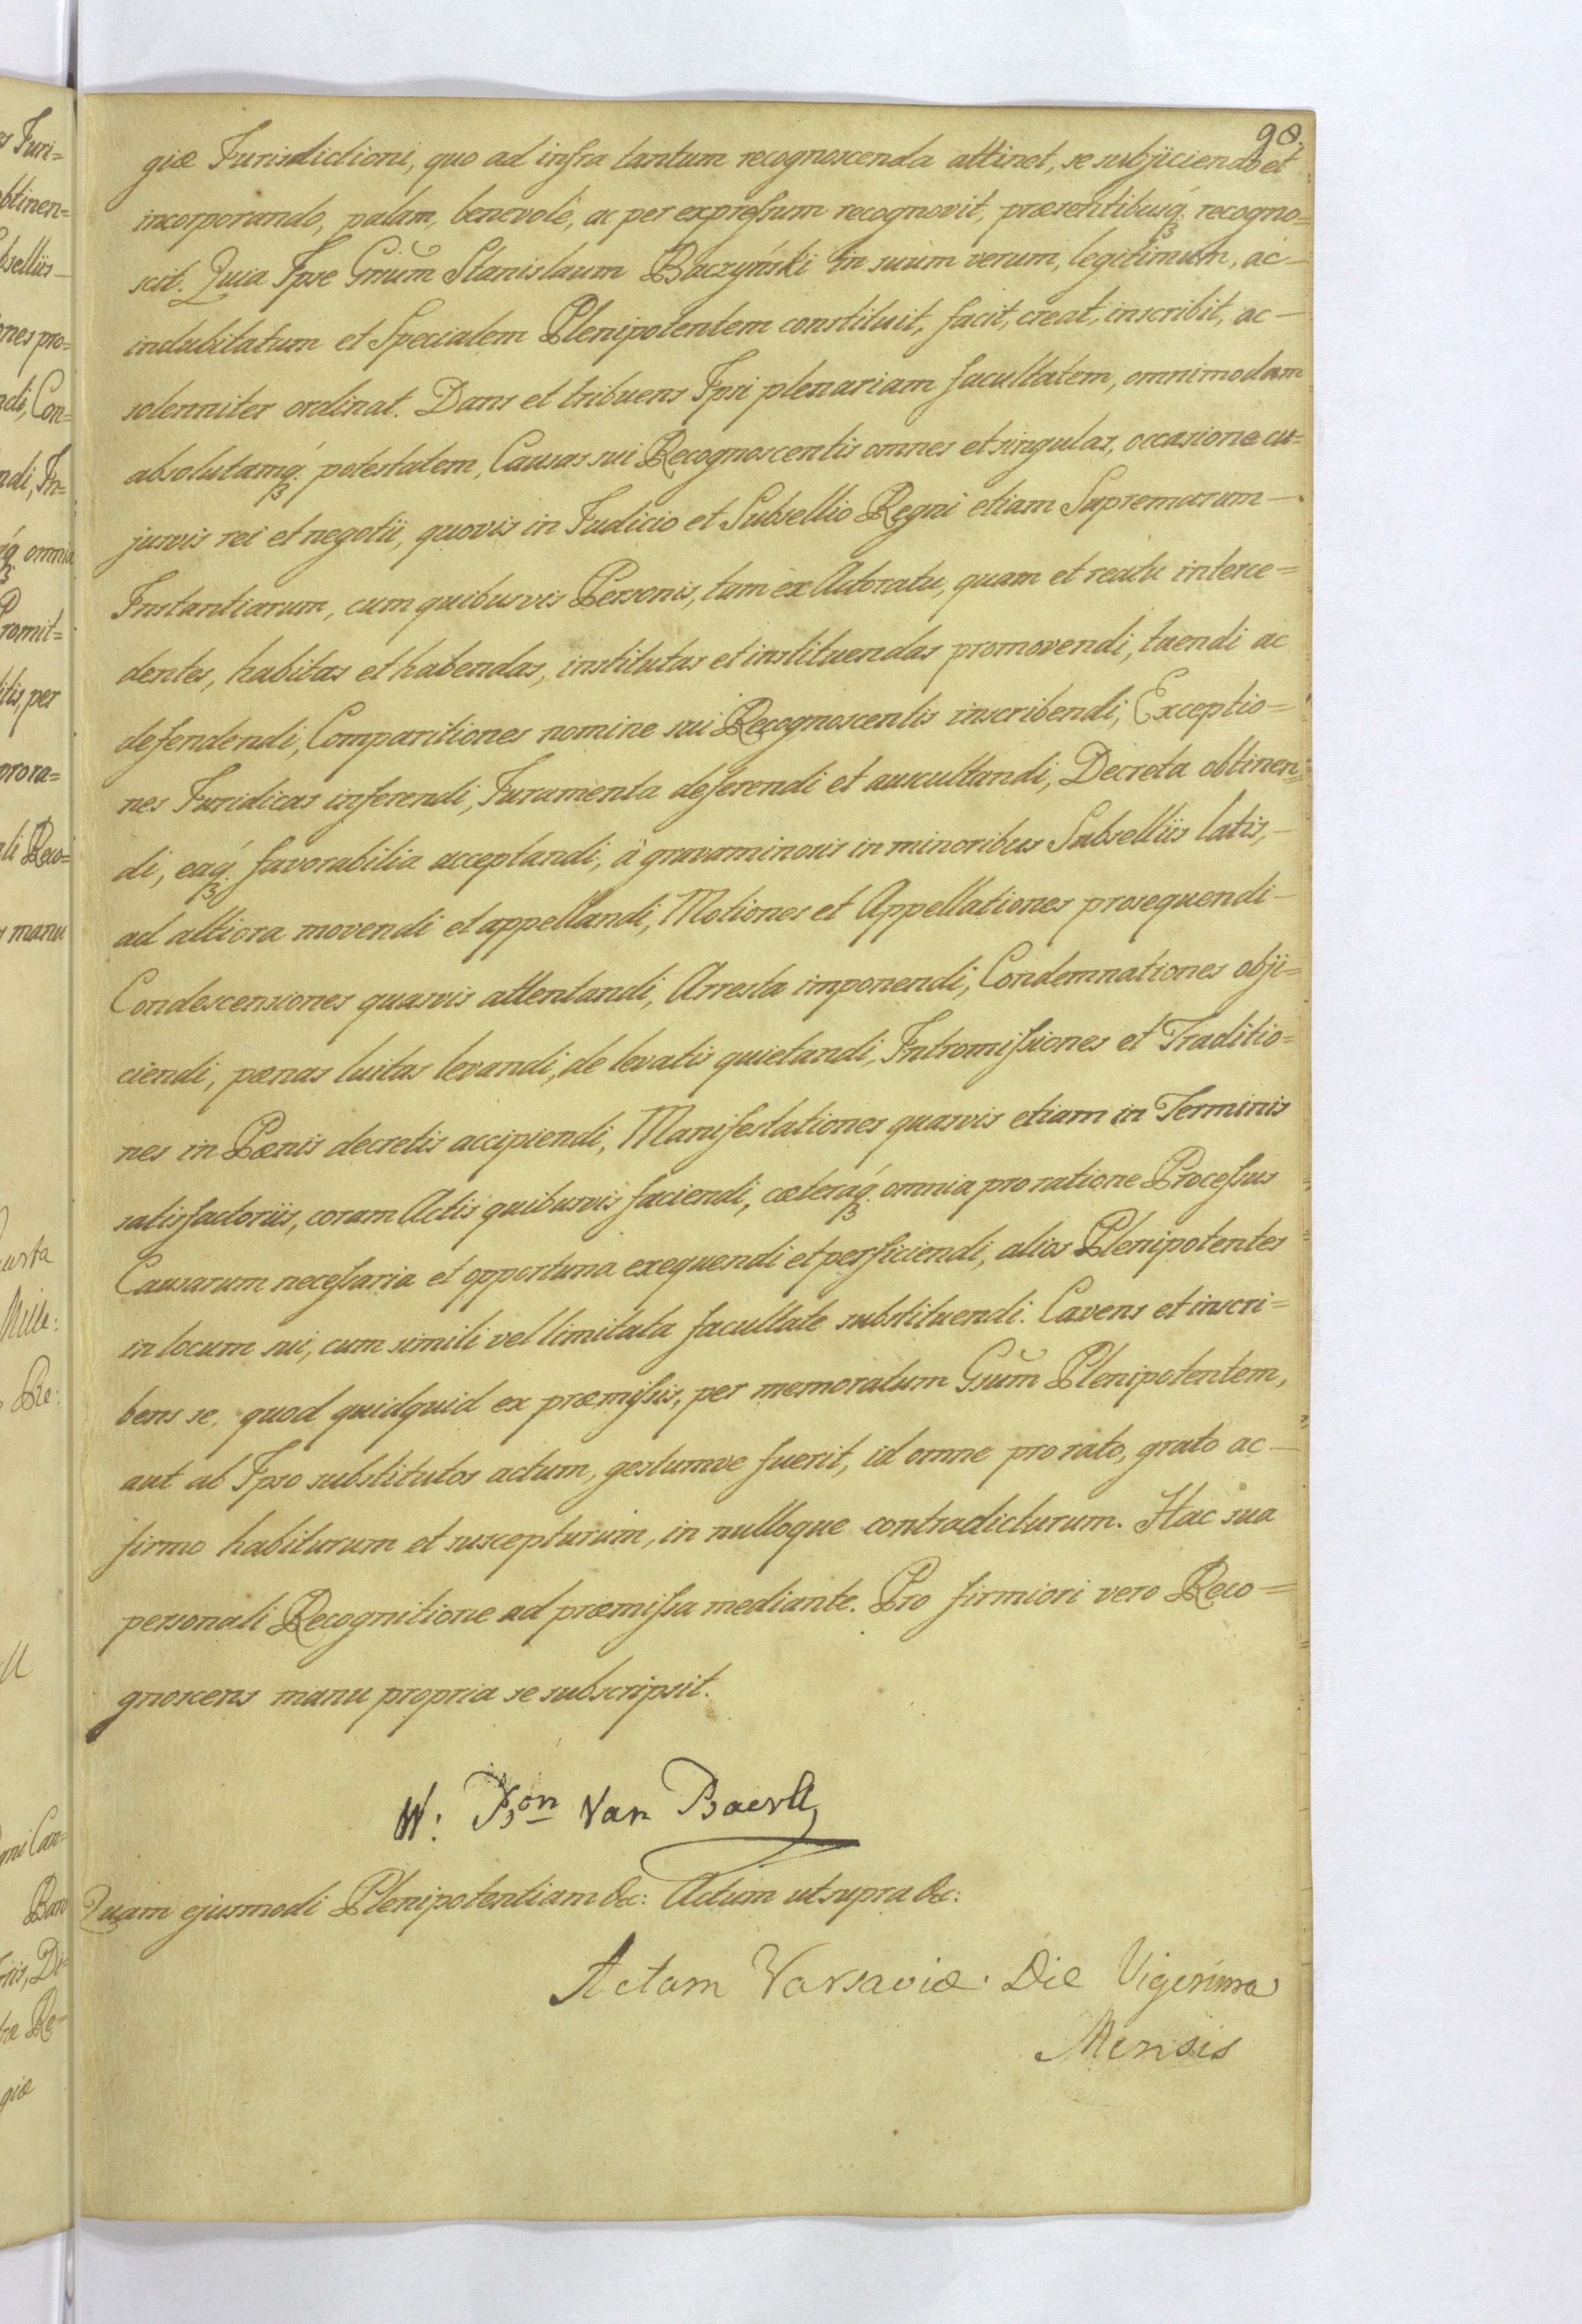 98.
giæ Jurisdictioni, quo ad infra tantum recognoscenda attinet, se subjiciendo et
incorporando, palam, benevolè, ac per expreſsum recognovit, præsentibusq́ꝫ recogno=
scit. Quia Ipse Gnũm Stanislaum Baczyński in suum verum, legitimum, ac—
indubitatum et Specialem Plenipotentem constituit, facit, creat, inscribit, ac—
solenniter ordinat. Dans et tribuens Ipsi plenariam facultatem, omnimodam
absolutamq́ꝫ potestatem, Causas sui Recognoscentis omnes et singulas, occasione cu=
jusvis rei et negotii, quovis in Judicio et Subsellio Regni etiam Supremarum—
Instantiarum, cum quibusvis Personis, tam ex Actoratu, quam et reatu interce=
dentes, habitas et habendas, institutas et instituendas promovendi, tuendi ac
defendendi, Comparitiones nomine sui Recognoscentis inscribendi, Exceptio=
nes Juridicas inferendi, Juramenta deferendi et auscultandi, Decreta obtinen=
di, eaq́ꝫ favorabilia acceptandi, à gravaminosis in minoribus Subselliis latis,—
ad altiora movendi et appellandi, Motiones et Appellationes prosequendi—
Condescensiones quasvis attentandi, Arresta imponendi, Condemnationes obji=
ciendi, pænas luitas levandi, de levatis quietandi, Intromiſsiones et Traditio=
nes in Bonis decretis accipiendi, Manifestationes quasvis etiam in Terminis
satisfactoriis, coram Actis quibusvis faciendi, cæteraq́ꝫ omnia pro ratione Proceſsus
Causarum neceſsaria et opportuna exequendi et perficiendi, alios Plenipotentes
in locum sui, cum simili vel limitata facultate substituendi. Cavens et inscri=
bens se, quod quidquid ex præmiſsis, per memoratum Gsũm Plenipotentem,
aut ab Ipso substitutos actum, gestumve fuerit, id omne pro rato, grato ac—
firmo habiturum et suscepturum, in nulloque contradicturum. Hac sua
personali Recognitione ad præmiſsa mediante. Pro firmiori vero Reco=
gnoscens manu propria se subscripsit.
W: Bon Van Baerll
Quam ejusmodi Plenipotentiam &c: Actum ut supra &c:
Actum Varsaviæ. Die Vigesima
Mensis